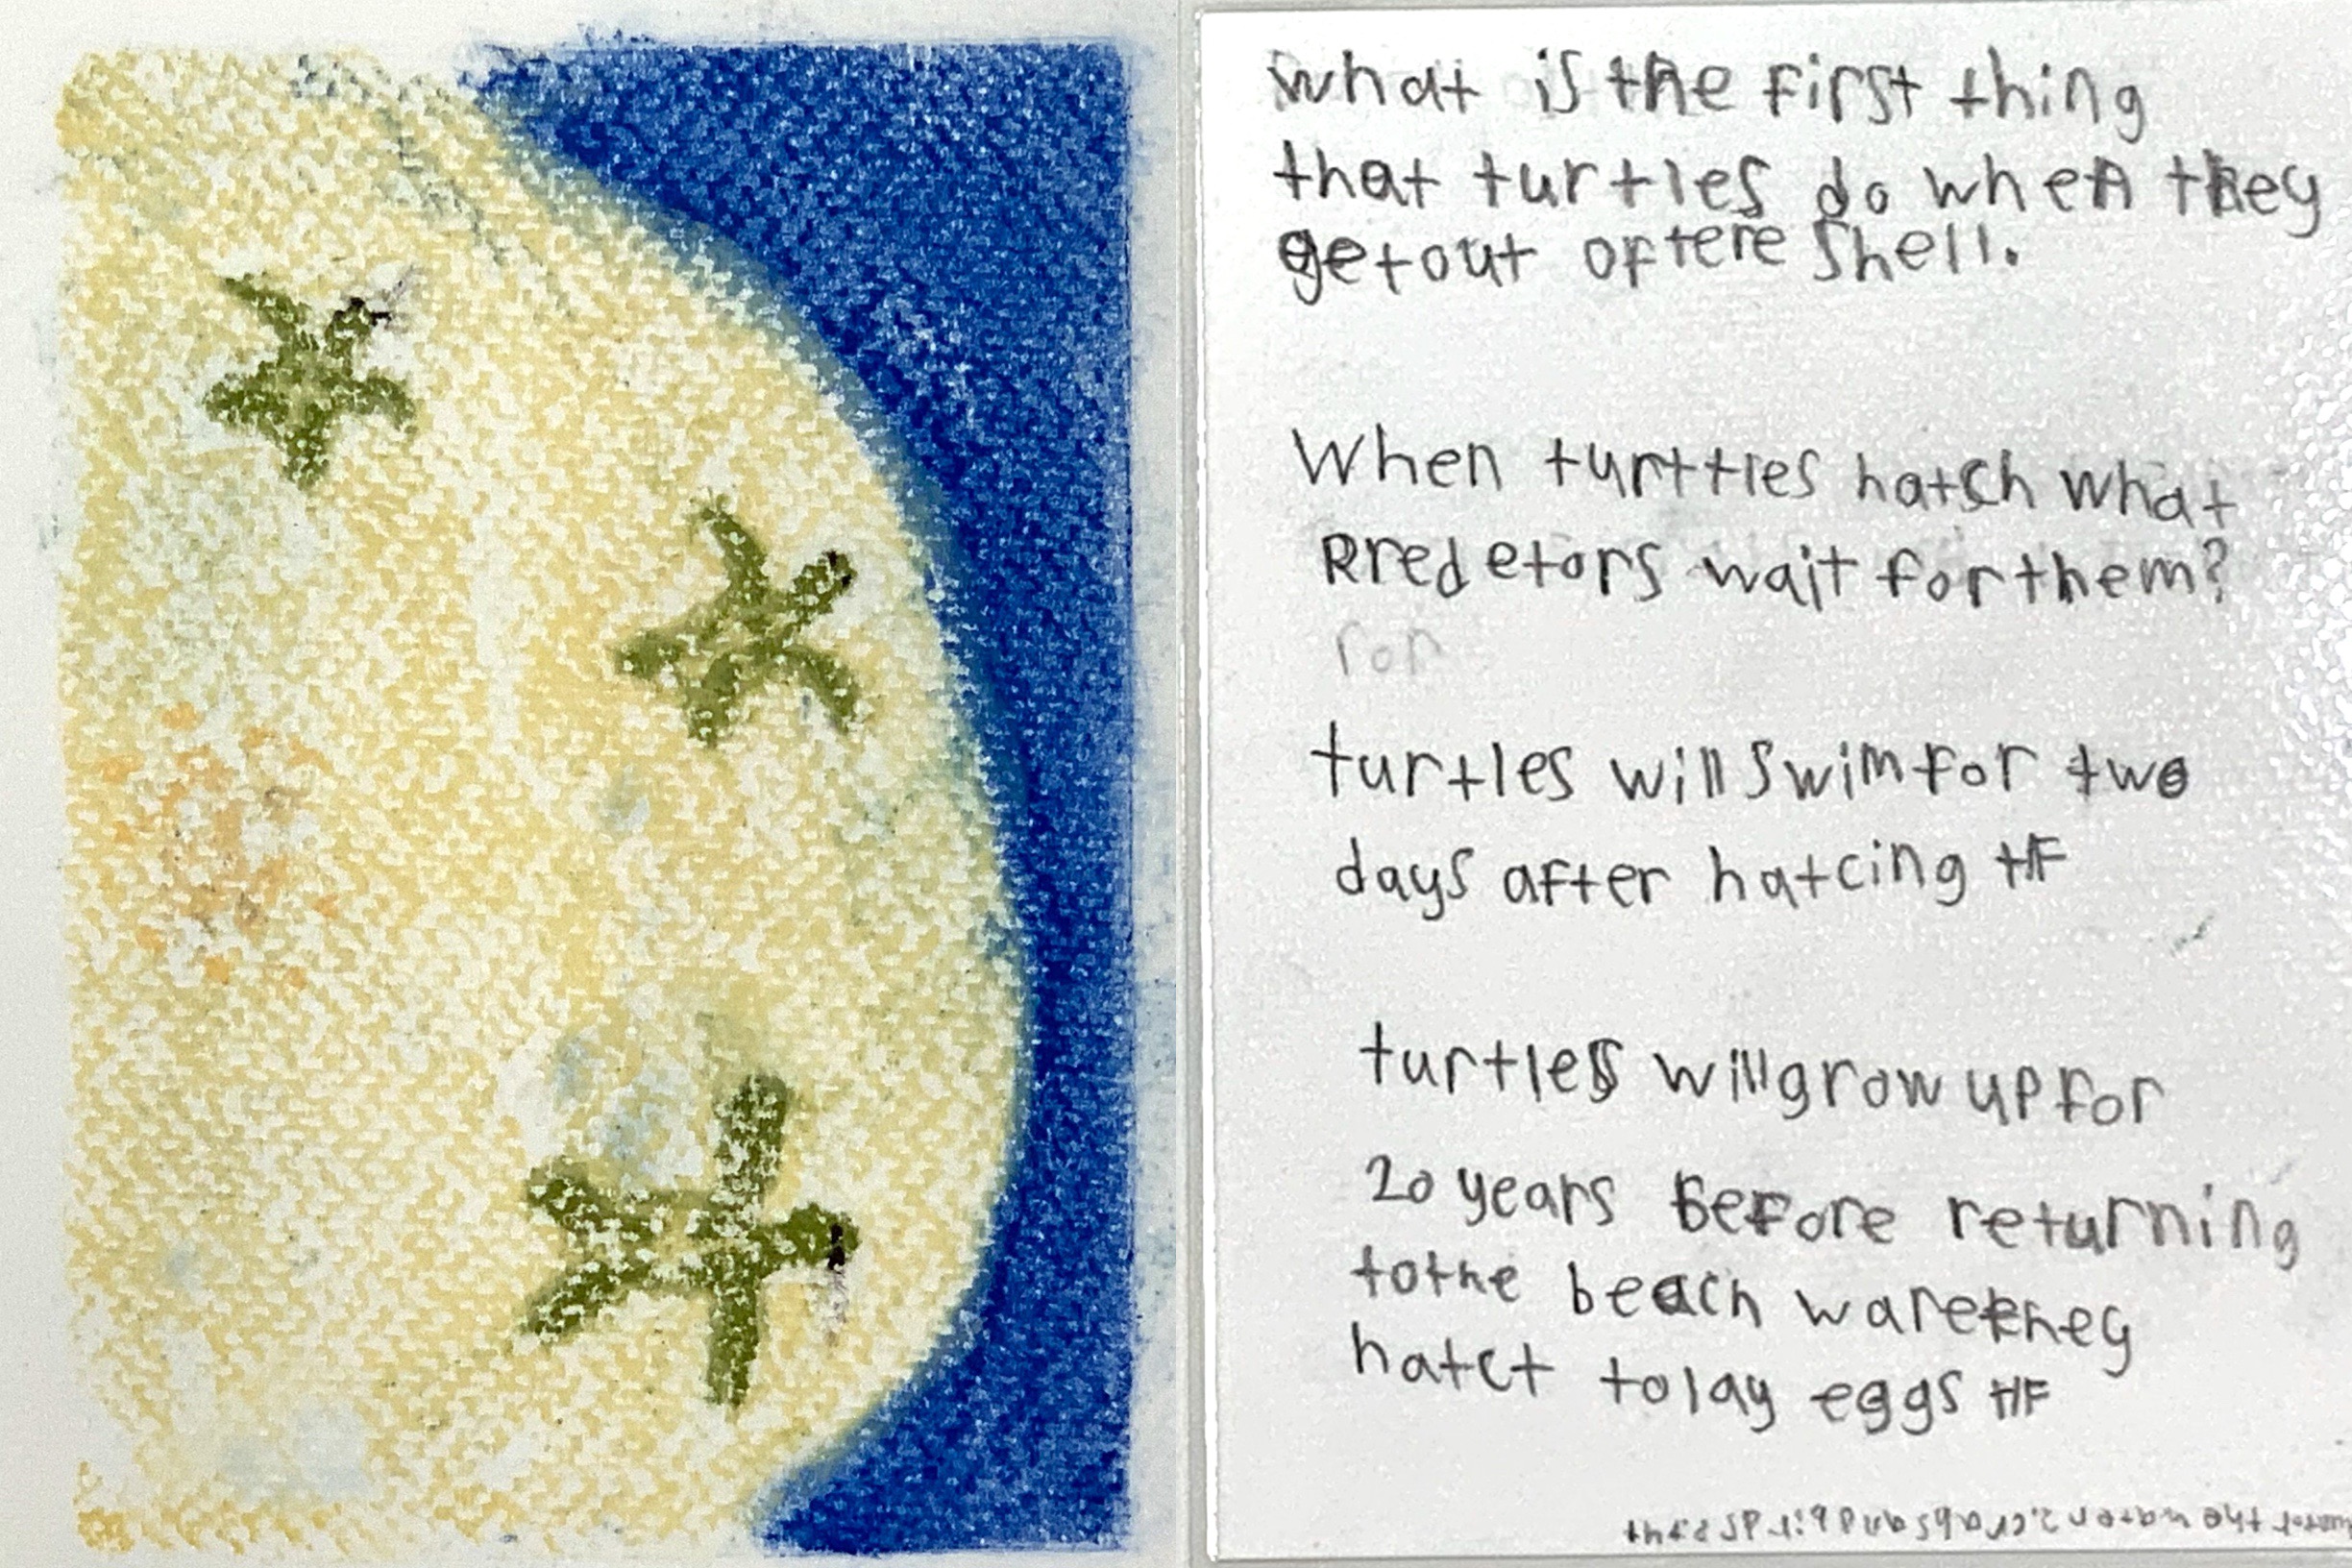 what is the first thing
that turtles do when they
get out of tere shell.
When turttles hatch what
Predetors wait for them?
for
turtles will swim for two
days after hatcing tF
turtles will grow up for
20 years before returning
to the beach ware they
hatct to lay eggs tF
for the water 2.crabs and birds